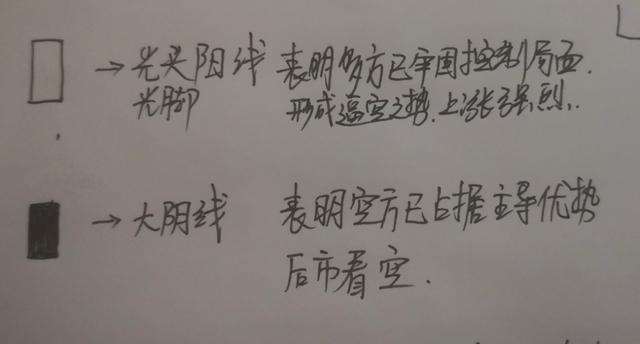 →光头阳线 表明多方已牢固控制局面.
光脚 形成逼空之势.上涨强烈.
→大阴线 表明空方已占据主导优势
后市看空.